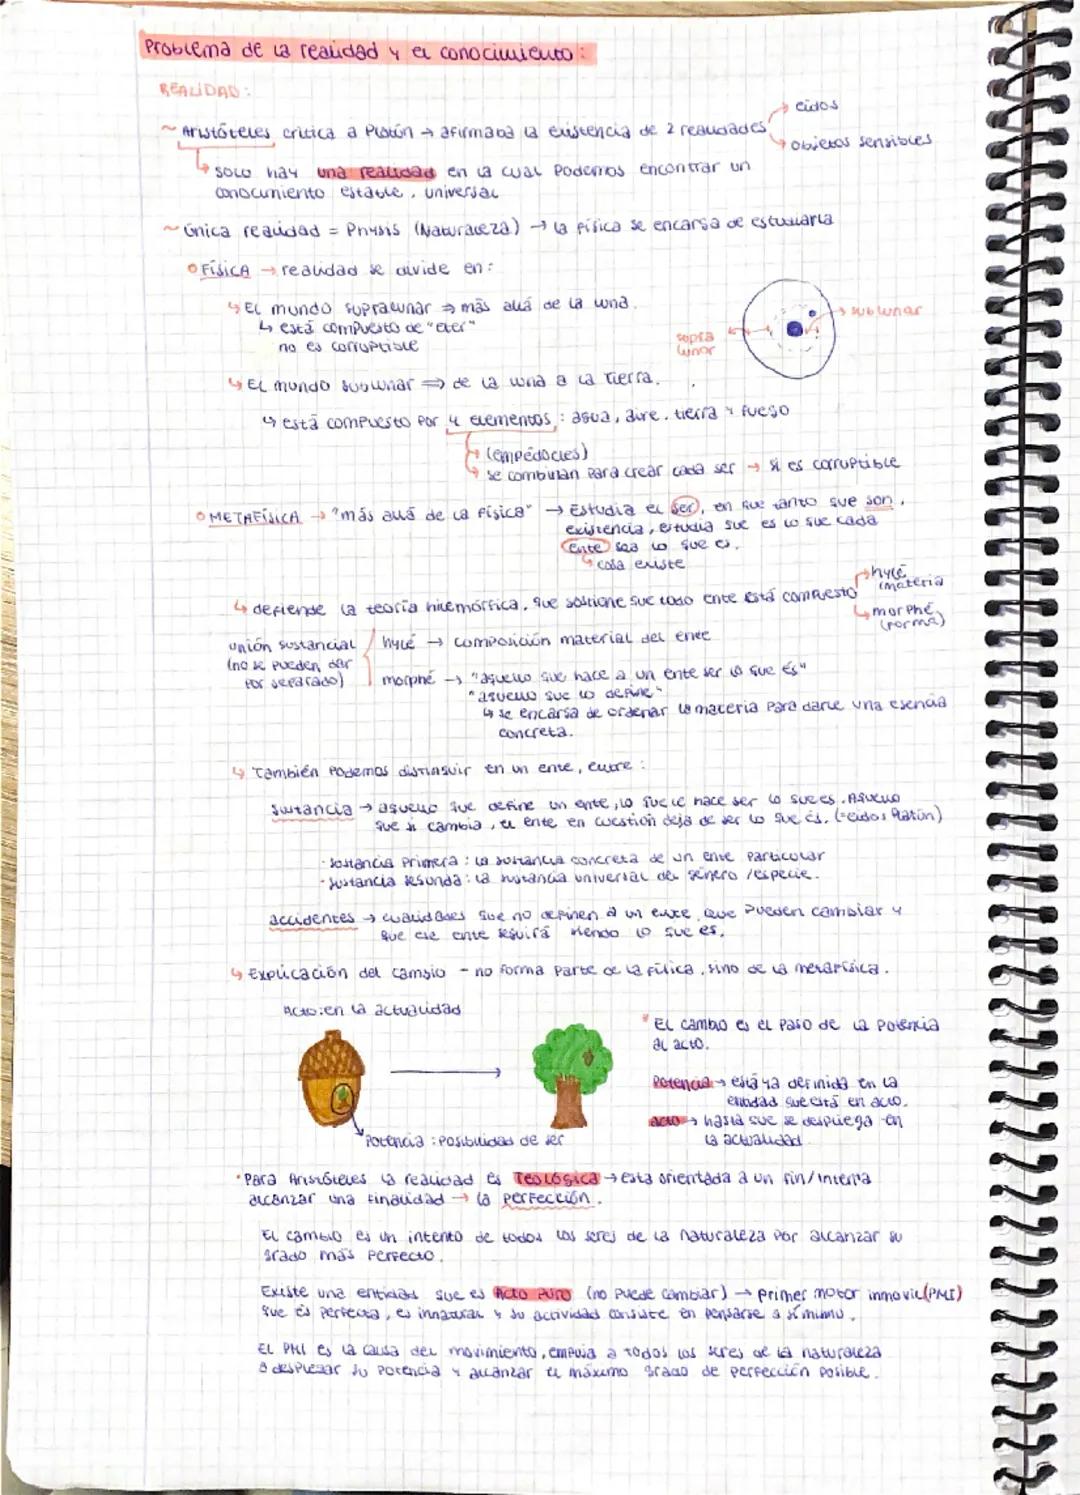 Problema de la realidad y el conocimiento:
REALIDAD:
~ Aristóteles critica a Platón → afirmaba la existencia de 2 realidades → eidos
→ objetos sensibles
↳ solo hay una realidad en la cual podemos encontrar un
conocimiento estable, universal
~ única realidad = Physis (Naturaleza) → la física se encarga de estudiarla
FÍSICA → realidad se divide en:
↳ El mundo supralunar ⇒ más allá de la luna.
↳ está compuesto de "eter"
no es corruptible
supra
lunar
sublunar
↳ El mundo sublunar ⇒ de la luna a la Tierra.
↳ está compuesto por 4 elementos: agua, aire, tierra y fuego
→ (empédocles)
→ se combinan para crear cada ser → si es corruptible
METAFÍSICA → "más allá de la física" → Estudia el ser, en que tanto que son,
existencia, estudia que es lo que cada
ente sea lo que es.
↳ cosa existe
↳ defiende la teoría hilemórfica, que sostiene que todo ente está compuesto → hylé
(materia
→ morphé
(forma)
unión sustancial
(no se pueden dar
por separado)
hylé → composición material del ente
morphé → "aquello que hace a un ente ser lo que és"
"aquello que lo define"
↳ se encarga de ordenar la materia para darle una esencia
concreta.
↳ También podemos distinguir en un ente, entre:
sustancia → aquello que define un ente, lo que le hace ser lo que es. Aquello
que si cambia, el ente en cuestión deja de ser lo que és. (=eidos Platón)
· sustancia primera: la sustancia concreta de un ente particular
· sustancia segunda: la sustancia universal del género/especie.
accidentes → cualidades que no definen a un ente, que pueden cambiar y
que ese ente seguirá siendo lo que es.
↳ Explicación del cambio - no forma parte de la física, sino de la metafísica.
Acto: en la actualidad
Potencia: posibilidad de ser
* El cambio es el paso de la potencia
al acto.
Potencia → está ya definida en la
entidad que está en acto.
acto → hasta que se despliega en
la actualidad
· Para Aristóteles la realidad es Teológica → esta orientada a un fin/intenta
alcanzar una finalidad → la perfección.
El cambio es un intento de todos los seres de la naturaleza por alcanzar su
grado más perfecto.
Existe una entidad que es Acto Puro (no puede cambiar) → primer motor inmovil (PMI)
que és perfecta, es innatural y su actividad consiste en pensarse a sí mismo.
El PMI es la causa del movimiento, empuja a todos los seres de la naturaleza
a desplegar su potencia y alcanzar el máximo grado de perfección posible.